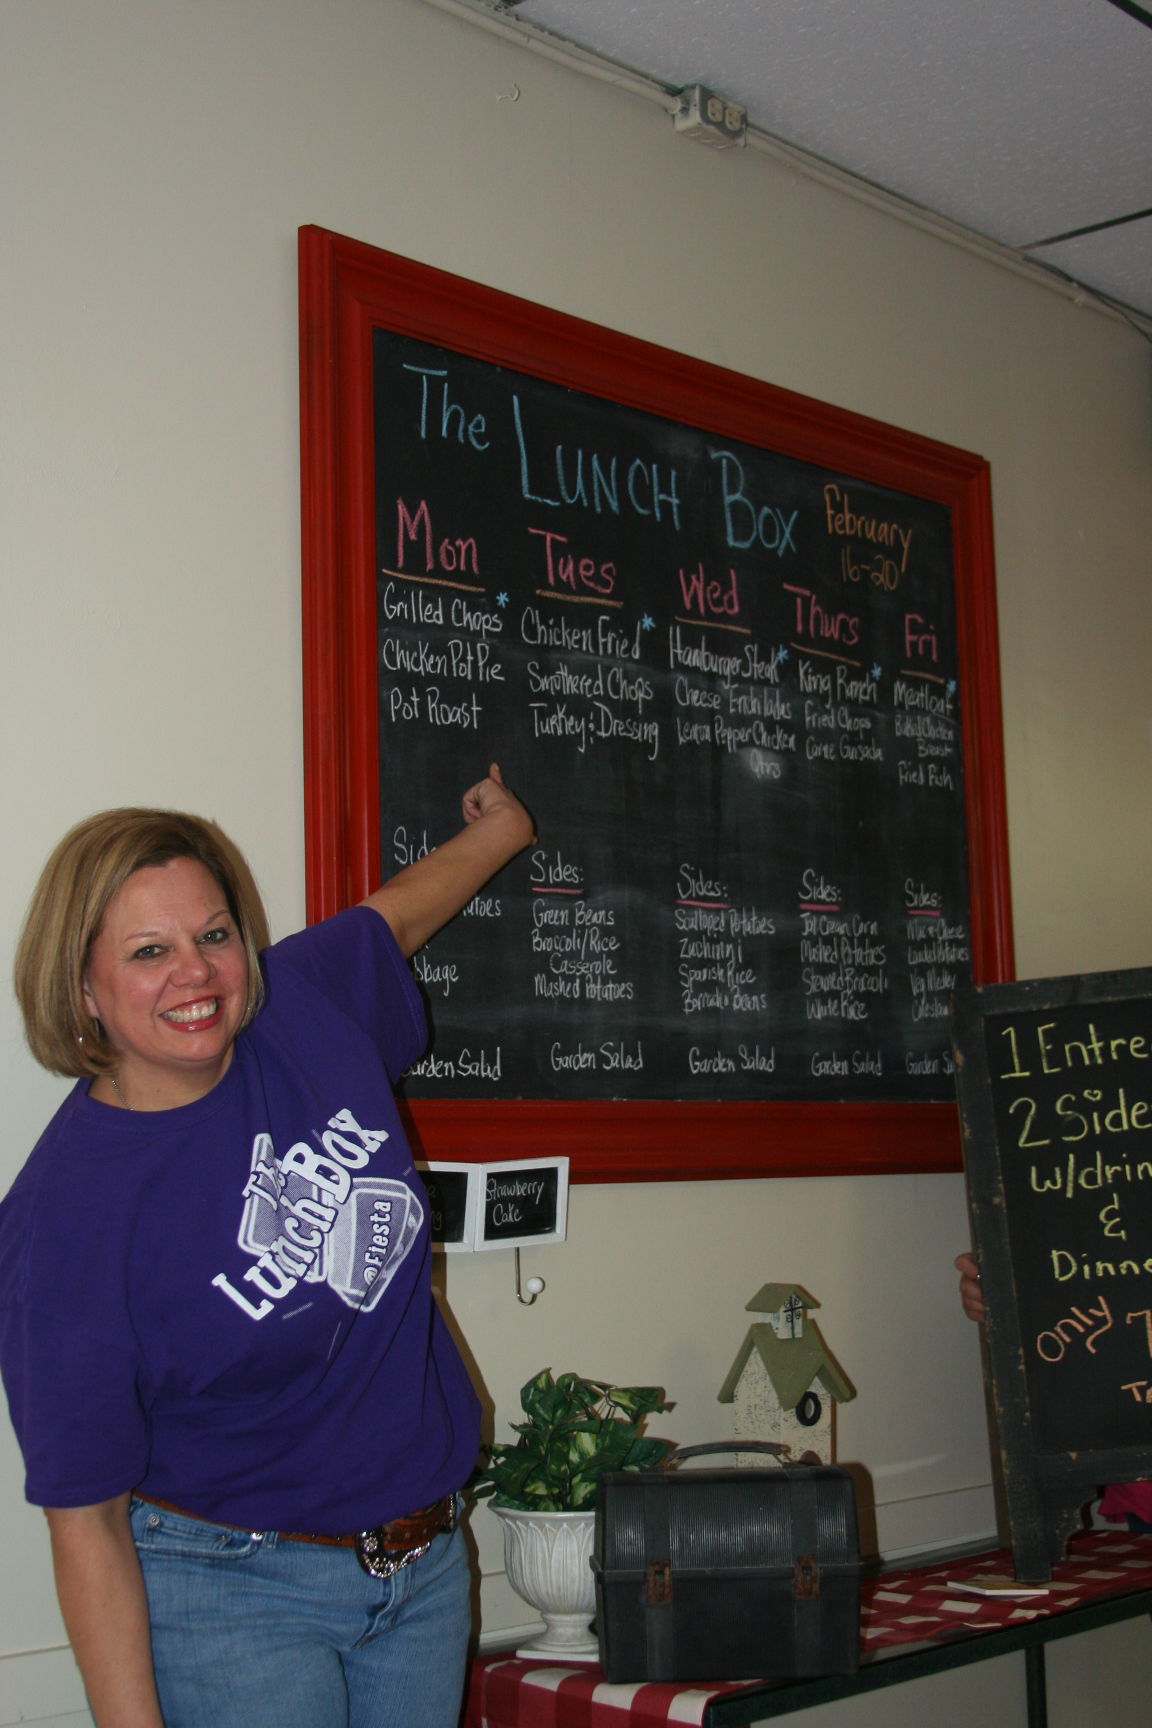 The LUNCH Box
February
16-20
Mon
Grilled Chops*
Chicken Pot Pie
Pot Roast
Garden Salad
Tues
Chicken Fried*
Smothered Chops
Turkey & Dressing
Sides:
Green Beans
Broccoli/Rice
Casserole
Mashed Potatoes
Garden Salad
Wed
Hamburger Steak*
Cheese Enchiladas
Lemon Pepper Chicken
Qtrs
Sides:
Scalloped Potatoes
Zuchinni
Spanish Rice
Borracho Beans
Garden Salad
Thurs
King Ranch*
Fried Chops
Carne Guisada
Sides:
Corn
Mashed Potatoes
Steamed Broccoli
White Rice
Garden Salad
Fri
Meatloaf*
Baked Chicken
Breast
Fried Fish
Sides:
Mac n Cheese
Loaded Potatoes
Veg Medley
Coleslaw
Garden
The
Lunch Box
@Fiesta
Strawberry
Cake
1 Entre
2 Side
w/drin
&
Dinne
only 7